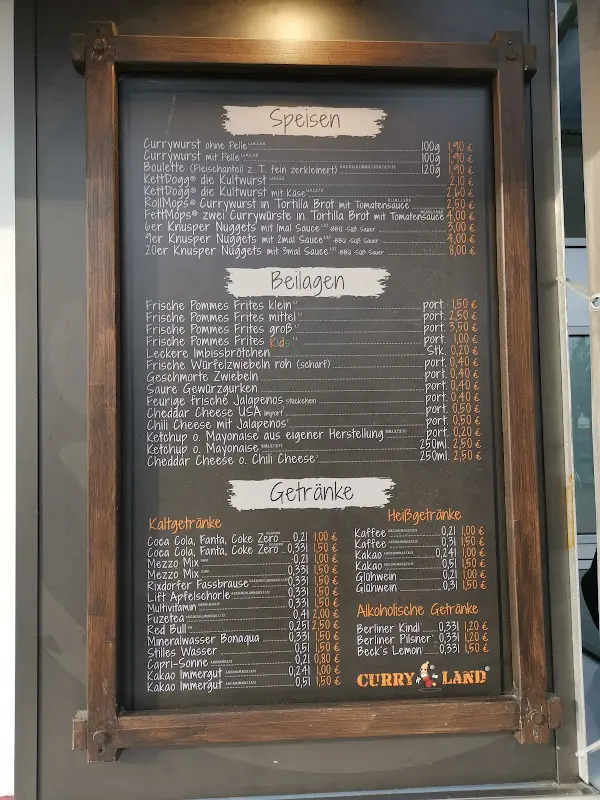 Speisen
Currywurst ohne Pelle 100g 1,90 €
Currywurst mit Pelle 100g 1,90 €
Boulette (Fleischanteil z. T. fein zerkleinert) 120g 1,90 €
KettDogg® die Kultwurst 2,10 €
KettDogg® die Kultwurst mit Käse 2,60 €
RollMops® Currywurst in Tortilla Brot mit Tomatensauce 2,50 €
FettMops® zwei Currywürste in Tortilla Brot mit Tomatensauce 4,00 €
6er Knusper Nuggets mit 1mal Sauce -BBQ -Süß Sauer 3,00 €
9er Knusper Nuggets mit 2mal Sauce -BBQ -Süß Sauer 4,00 €
20er Knusper Nuggets mit 3mal Sauce -BBQ -Süß Sauer 8,00 €
Beilagen
Frische Pommes Frites klein port. 1,50 €
Frische Pommes Frites mittel port. 2,50 €
Frische Pommes Frites groß port. 3,50 €
Frische Pommes Frites Kids port. 1,00 €
Leckere Imbissbrötchen Stk. 0,20 €
Frische Würfelzwiebeln roh (scharf) port. 0,40 €
Geschmorte Zwiebeln port. 0,40 €
Saure Gewürzgurken port. 0,40 €
Feurige frische Jalapenos stückchen port. 0,40 €
Cheddar Cheese USA import port. 0,50 €
Chili Cheese mit Jalapenos port. 0,50 €
Ketchup o. Mayonaise aus eigener Herstellung port. 0,20 €
Ketchup o. Mayonaise 250ml. 2,50 €
Cheddar Cheese o. Chili Cheese 250ml. 2,50 €
Getränke
Kaltgetränke
Coca Cola, Fanta, Coke Zero 0,2l 1,00 €
Coca Cola, Fanta, Coke Zero 0,33l 1,50 €
Mezzo Mix 0,2l 1,00 €
Mezzo Mix 0,33l 1,50 €
Rixdorfer Fassbrause 0,33l 1,50 €
Lift Apfelschorle 0,33l 1,50 €
Multivitamin 0,33l 1,50 €
Fuzetea 0,4l 2,00 €
Red Bull 0,25l 2,50 €
Mineralwasser Bonaqua 0,33l 1,50 €
Stilles Wasser 0,5l 1,50 €
Capri-Sonne 0,2l 0,80 €
Kakao Immergut 0,24l 1,00 €
Kakao Immergut 0,5l 1,50 €
Heißgetränke
Kaffee 0,2l 1,00 €
Kaffee 0,3l 1,50 €
Kakao 0,24l 1,00 €
Kakao 0,5l 1,50 €
Glühwein 0,2l 1,00 €
Glühwein 0,3l 1,50 €
Alkoholische Getränke
Berliner Kindl 0,33l 1,20 €
Berliner Pilsner 0,33l 1,20 €
Beck's Lemon 0,33l 1,50 €
CURRY LAND®